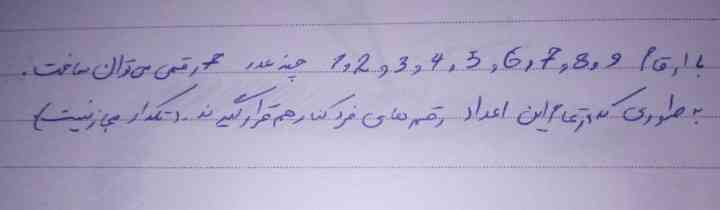 با ارقام 1,2,3,4,5,6,7,8,9 چند عدد 7 رقمی می توان ساخت.
به طوری که در تمام این اعداد رقم های فرد کنار هم قرار گیرند. (تکرار مجاز نیست)